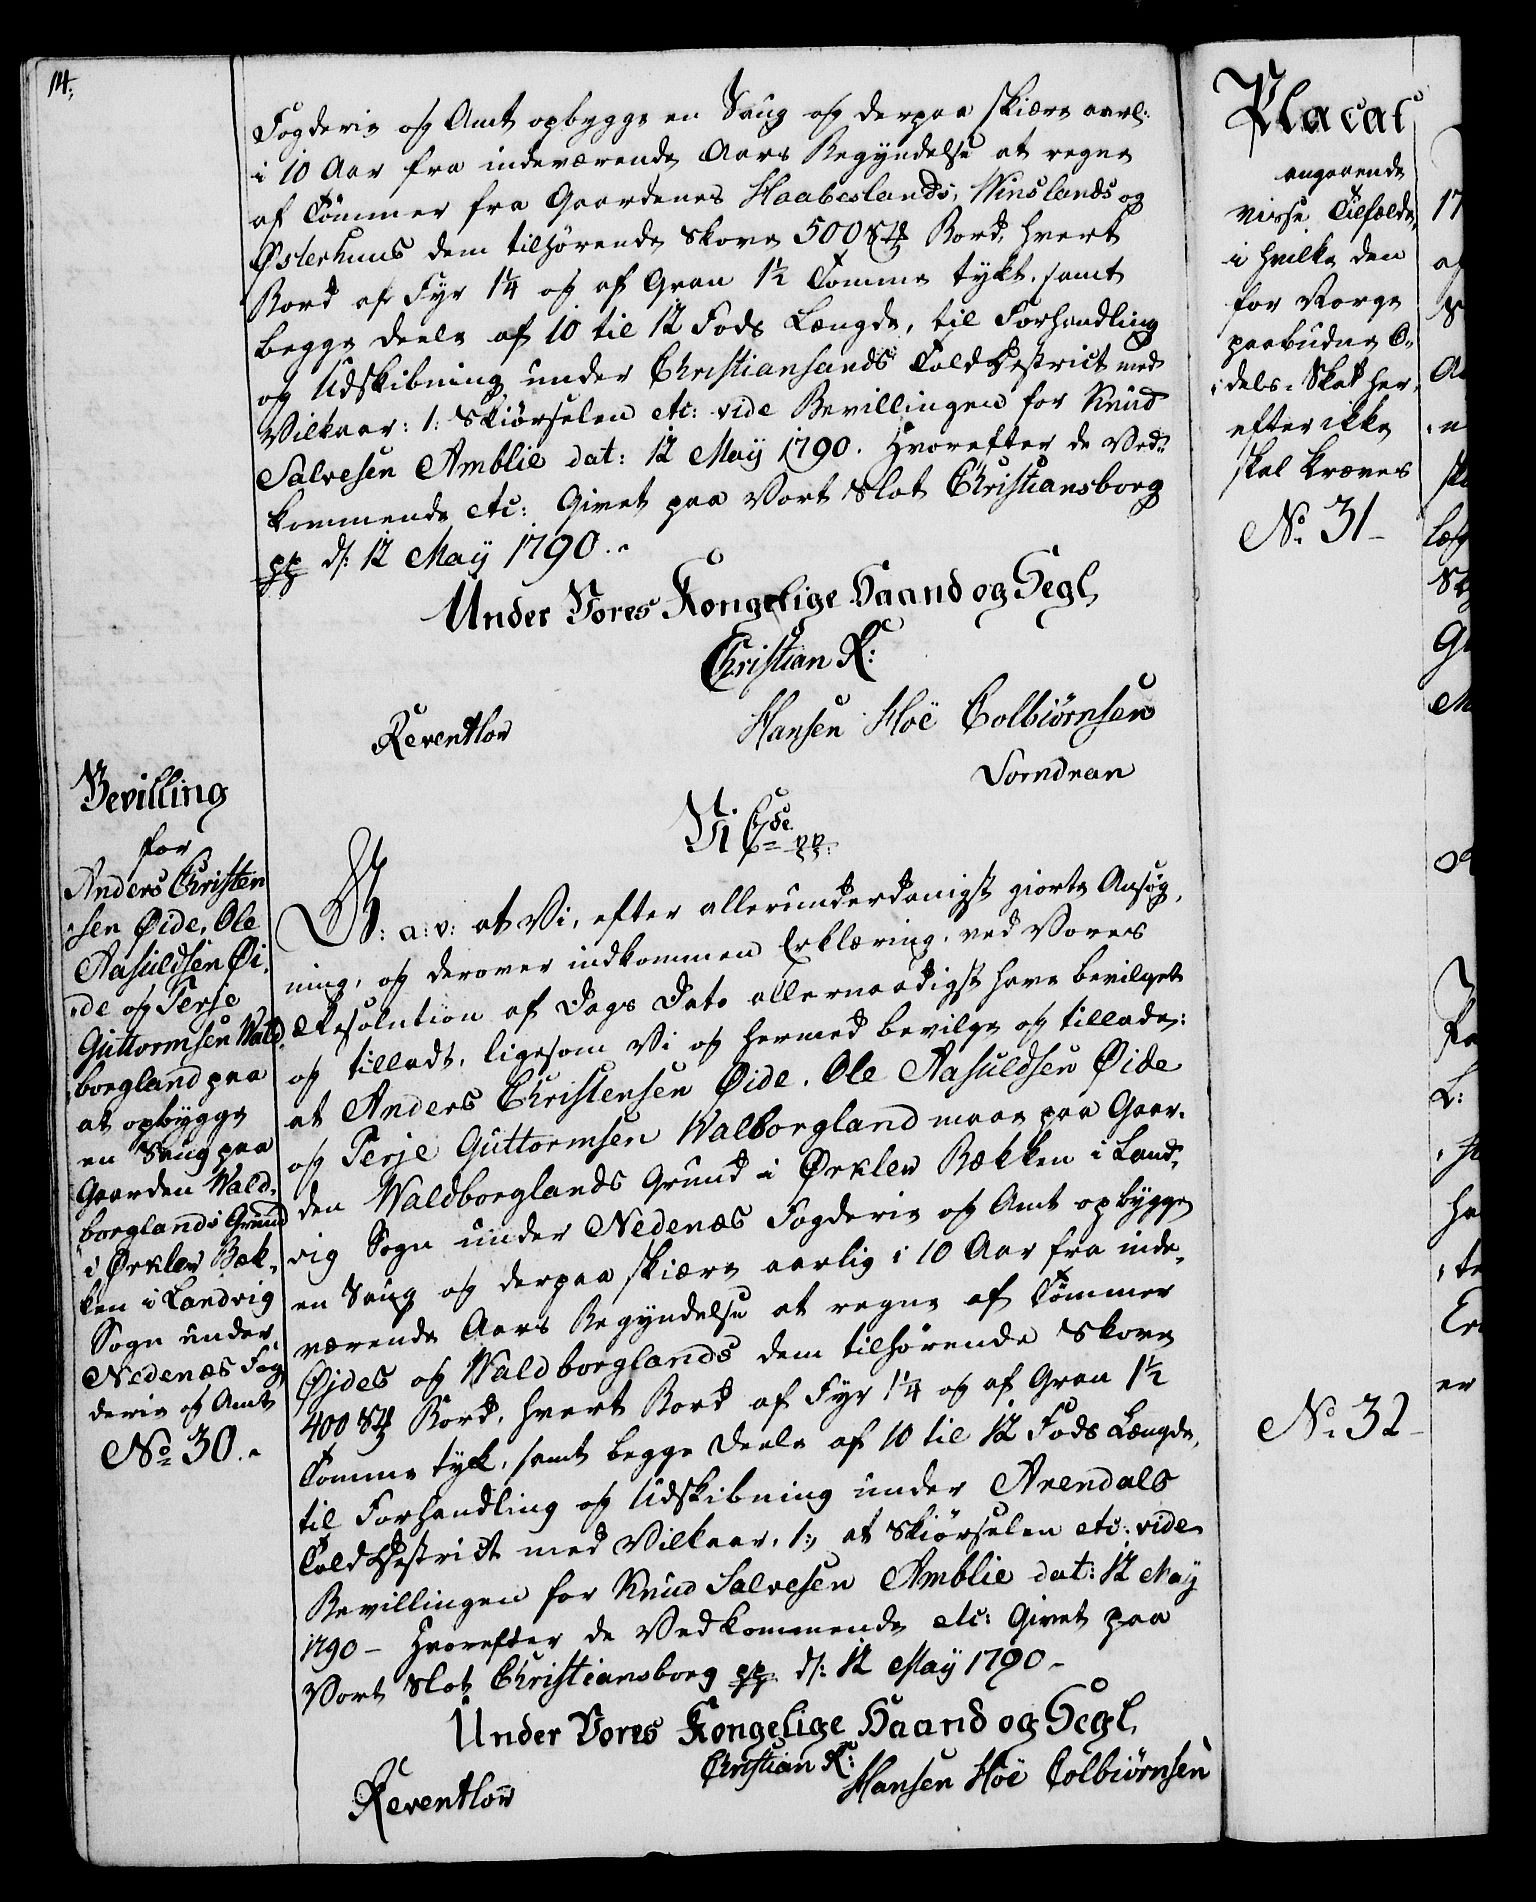 14.
Fogderie og Amt opbygge en Saug og derpaa skiære aarl:
i 10 Aar fra indeværende Aars Begyndelse at regne
af Tømmer fra Gaardenes Haabeslands, Winslands og
Østerhuus dem tilhørende Skove 500 Stk Bord, hvert
Bord af Fyr 1¼ og af Gran 1½ Tomme tykt, samt
begge deele af 10 til 12 Fods Længde, til Forhandling
og Udskibning under Christiansands Told Destrict med
Vilkaar: 1: Skiørselen etc: vide Bevillingen for Knud
Salvesen Amblie dat: 12 May 1790. Hvorefter de Ved-
kommende etc: Givet paa Vort Slot Christiansborg
pp d: 12 May 1790.
Under Vores Kongelige Haand og Segl,
Christian R:
Reventlov
Hansen Hoë Colbiørnsen
Lorndran
Bevilling
for
Anders Christen
sen Øide, Ole
Aasuldsen Øi,
de og Terje
Guttormsen Wald,
borgland paa
at opbygge
en Saug paa
Gaarden Wald,
borglands Grund
i Ørklev Bæk,
ken i Landvig
Sogn under
Nedenæs Fog,
derie og Amt
No 30.
Vi C 7de pp:
G: a: v: at Vi, efter allerunderdanigst giorte Ansøg,
ning, og derover indkommen Erklæring, ved Vores
Resolution af Dags Dato allernaadigst have bevilget
og tilladt, ligesom Vi og hermed bevilge og tillade:
at Anders Christensen Øide, Ole Aasuldsen Øide
og Terje Guttormsen Walborgland maae paa Gaar,
den Waldborglands Grund i Ørklev Bækken i Land,
vig Sogn under Nedenæs Fogderie og Amt opbygge
en Saug og derpaa skiære aarlig i 10 Aar fra inde,
værende Aars Begyndelse at regne af Tømmer
Øjdes og Waldborglands dem tilhørende Skove
400 Stk Bord, hvert Bord af Fyr 1¼ og af Gran 1½
Tomme tyk, samt begge Deele af 10 til 12 Fods Længde,
til Forhandling og Udskibning under Arendals
Told Destrict med Vilkaar, 1:, at Skiørselen etc: vide
Bevillingen for Knud Salvesen Amblie dat: 12 May
1790 – Hvorefter de Vedkommende etc: Givet paa
Vort Slot Christiansborg pp d: 12 May 1790 –
Under Vores Kongelige Haand og Segl,
Christian R:
Reventlow
Hansen Hoë Colbiørnsen
Placat
angaaende
visse Tilfælde,
i hvilke den
for Norge
paabudne O,
dels-Skat her,
efter ikke
skal kræves
No 31 –
No 32 –